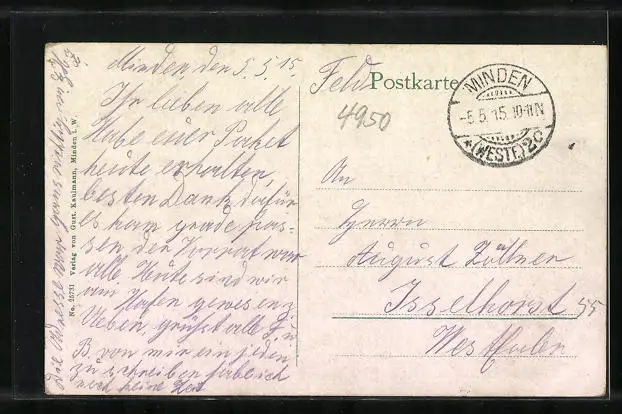 Minden den 5.5.15.
Ihr lieben alle
Habe euer Paket
heute erhalten,
besten Dank dafür
es kam grade pas-
sen, der Vorrat war
alle. Heute sind wir
am Hafen gewesen z.
Ueben, grüßt alle
B. von mir ein jeden
zu schreiben habe ich
noch keine Zeit
Die Adresse
No. 25731 Verlag von Gust. Kaulmann, Minden i. W.
Feld Postkarte
4950
MINDEN
-5.5.15.10-11N
*(WESTF)2c
An
Herrn
August Zöllner
Isselhorst 55
Westfalen